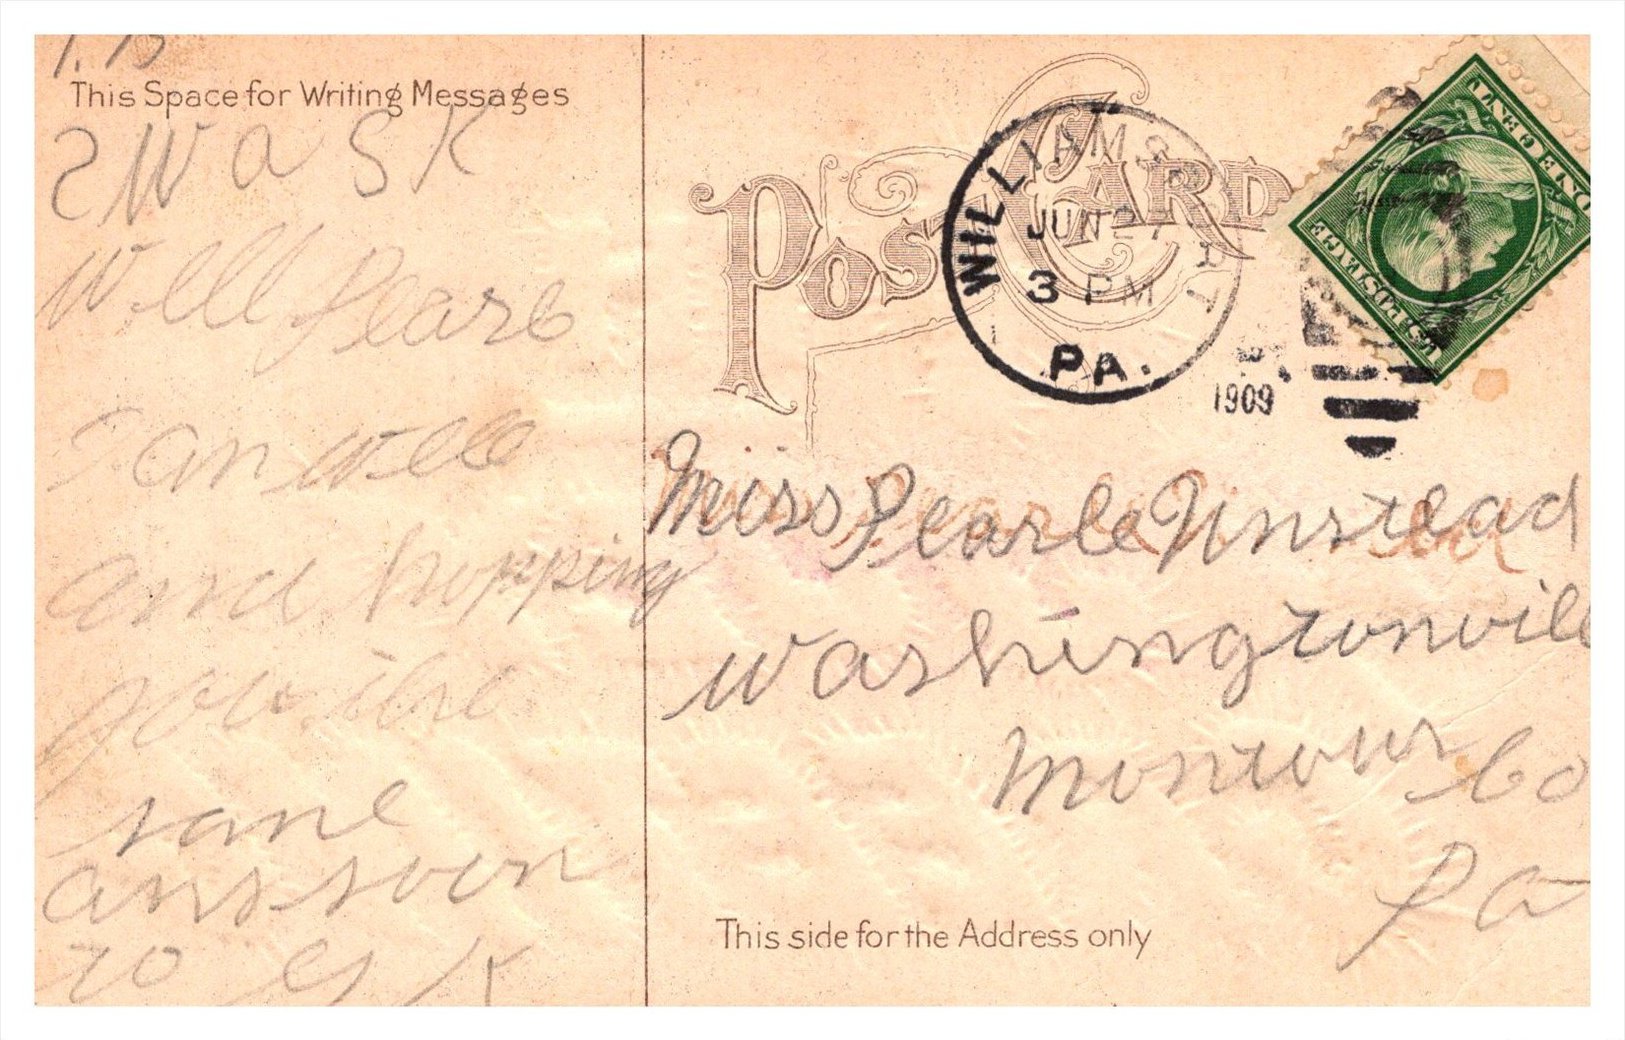 This Space for Writing Messages
Well Pearl
I am well
and hopping
you the
same
ans soon
to
POST CARD
WILLIAMSPORT
JUN 27
3 PM
PA.
1909
U.S. POSTAGE
ONE CENT
Miss Pearle Umstead
Washingtonville
Montour Co
Pa
This side for the Address only